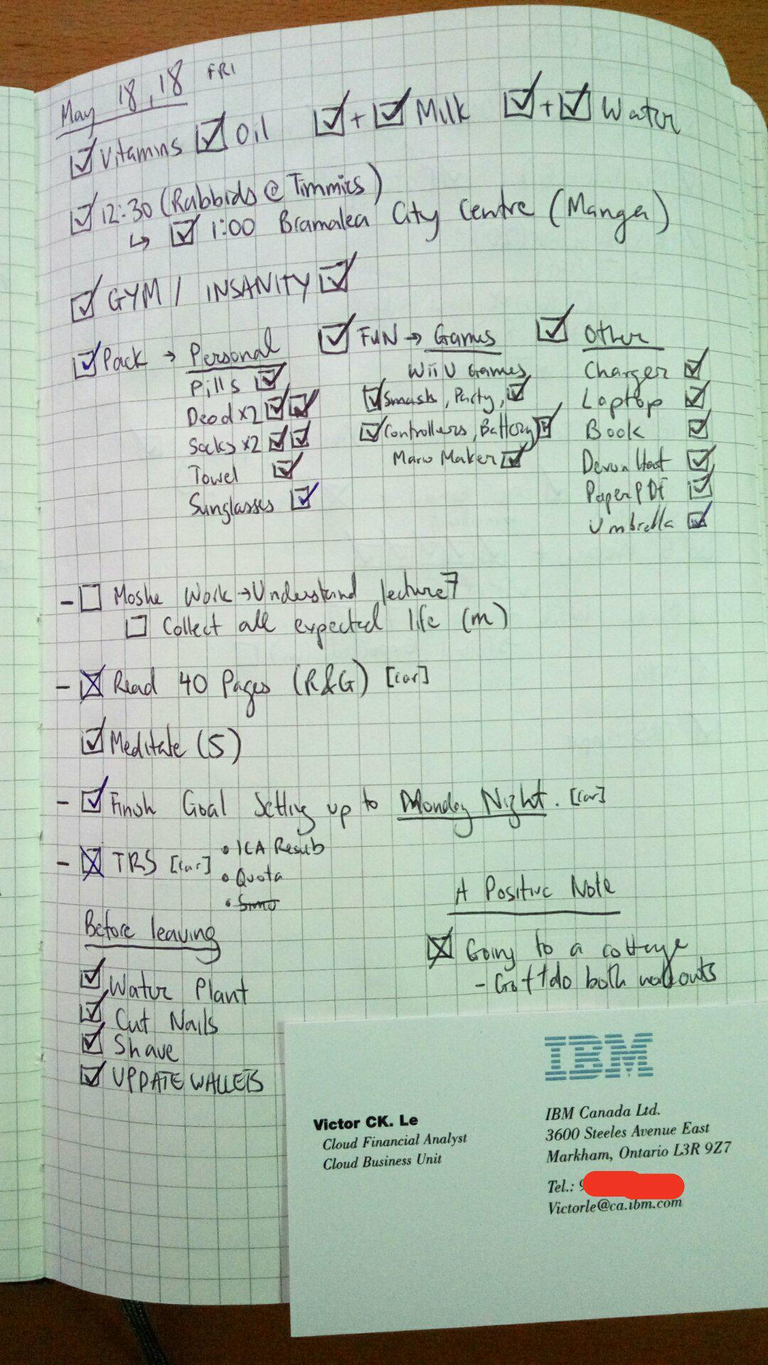 May 18, 18 FRI
☑ Vitamins ☑ Oil ☑+☑ Milk ☑+☑ Water
☑ 12:30 (Rabbids @ Timmies)
↳ ☑ 1:00 Bramalea City Centre (Manga)
☑ GYM / INSANITY ☑
☑ Pack → Personal
Pills ☑
Deod x2 ☑☑
Socks x2 ☑☑
Towel ☑
Sunglasses ☑
☑ FUN → Games
Wii U Games
☑ Smash, Party, ☑
☑ Controllers, Battery ☑
Mario Maker ☑
☑ Other
Charger ☑
Laptop ☑
Book ☑
Devon ☑
Paper PDF ☑
Umbrella ☑
- ☐ Moshe Work → Understand lecture 7
☐ Collect all expected life (m)
- ☒ Read 40 Pages (R&G) [car]
☑ Meditate (5)
- ☑ Finish Goal Setting up to Monday Night. [car]
- ☒ TRS [car]
• ICA Resub
• Quota
Before leaving
☑ Water Plant
☑ Cut Nails
☑ Shave
☑ UPDATE WALLETS
A Positive Note
☒ Going to a cottage
- Got to do both workouts
IBM
Victor CK. Le
Cloud Financial Analyst
Cloud Business Unit
IBM Canada Ltd.
3600 Steeles Avenue East
Markham, Ontario L3R 9Z7
Tel.: 9
Victorle@ca.ibm.com